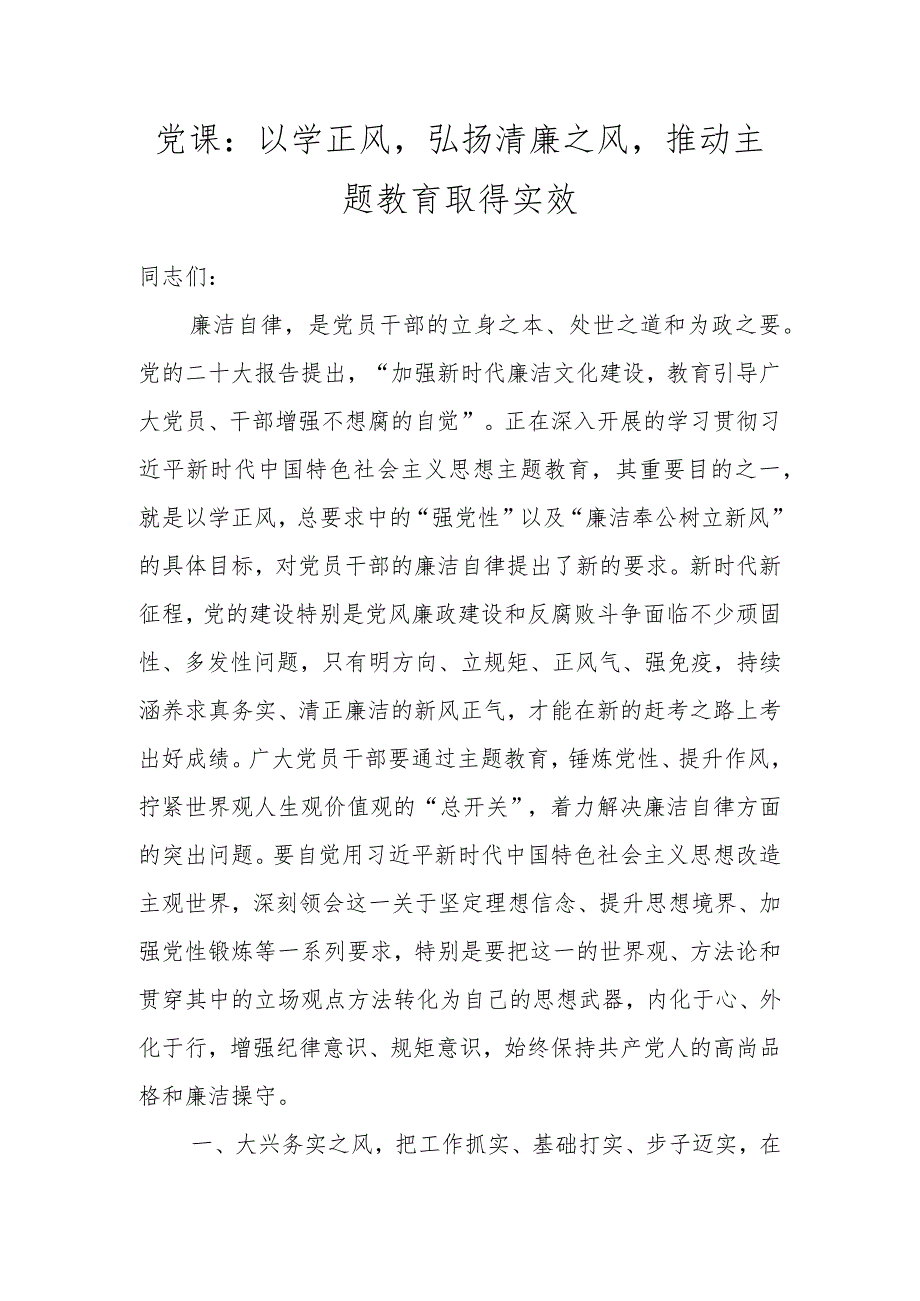 党课：以学正风，弘扬清廉之风，推动主
题教育取得实效
同志们：
廉洁自律，是党员干部的立身之本、处世之道和为政之要。
党的二十大报告提出，“加强新时代廉洁文化建设，教育引导广
大党员、干部增强不想腐的自觉”。正在深入开展的学习贯彻习
近平新时代中国特色社会主义思想主题教育，其重要目的之一，
就是以学正风，总要求中的“强党性”以及“廉洁奉公树立新风”
的具体目标，对党员干部的廉洁自律提出了新的要求。新时代新
征程，党的建设特别是党风廉政建设和反腐败斗争面临不少顽固
性、多发性问题，只有明方向、立规矩、正风气、强免疫，持续
涵养求真务实、清正廉洁的新风正气，才能在新的赶考之路上考
出好成绩。广大党员干部要通过主题教育，锤炼党性、提升作风，
拧紧世界观人生观价值观的“总开关”，着力解决廉洁自律方面
的突出问题。要自觉用习近平新时代中国特色社会主义思想改造
主观世界，深刻领会这一关于坚定理想信念、提升思想境界、加
强党性锻炼等一系列要求，特别是要把这一的世界观、方法论和
贯穿其中的立场观点方法转化为自己的思想武器，内化于心、外
化于行，增强纪律意识、规矩意识，始终保持共产党人的高尚品
格和廉洁操守。
一、大兴务实之风，把工作抓实、基础打实、步子迈实，在